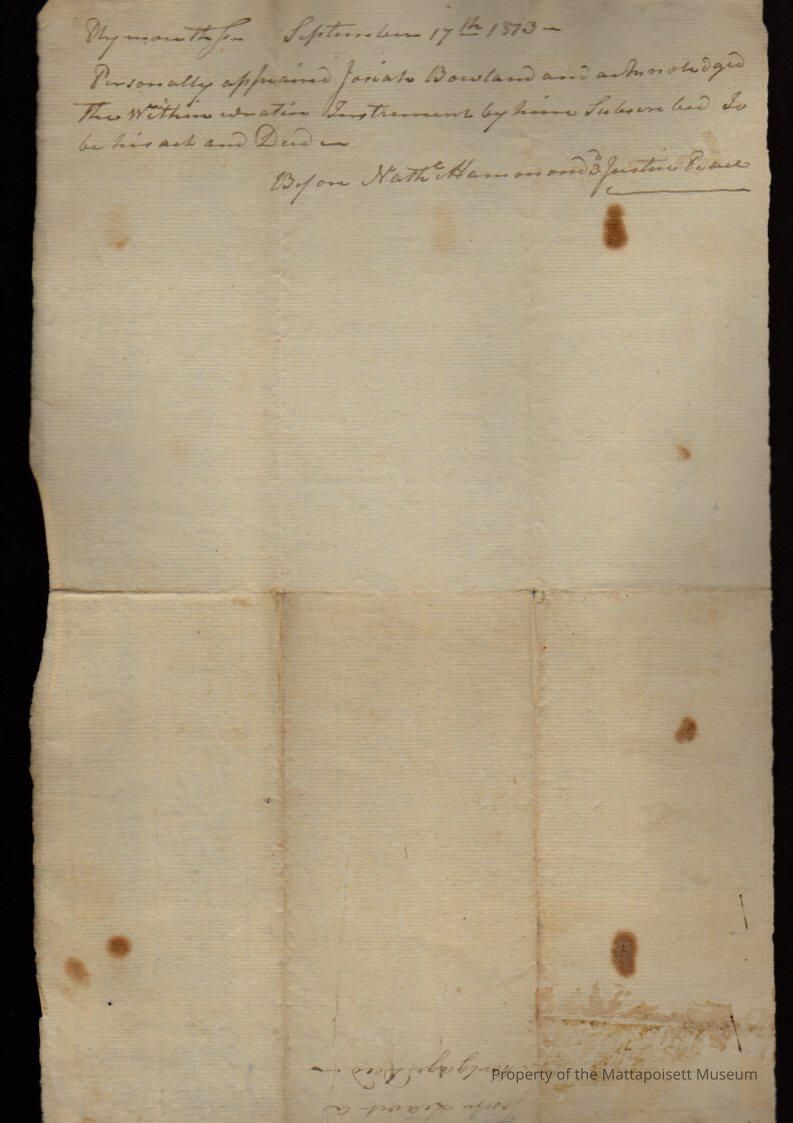 Plymouth Ss September 17th 1813 –
Personally appeaired Josiah Bowland and acknowledged
the Within written Instrement by him Subscribed To
be his act and Deed
Before Nathl Hammond 3d Justice Peace
Property of the Mattapoisett Museum